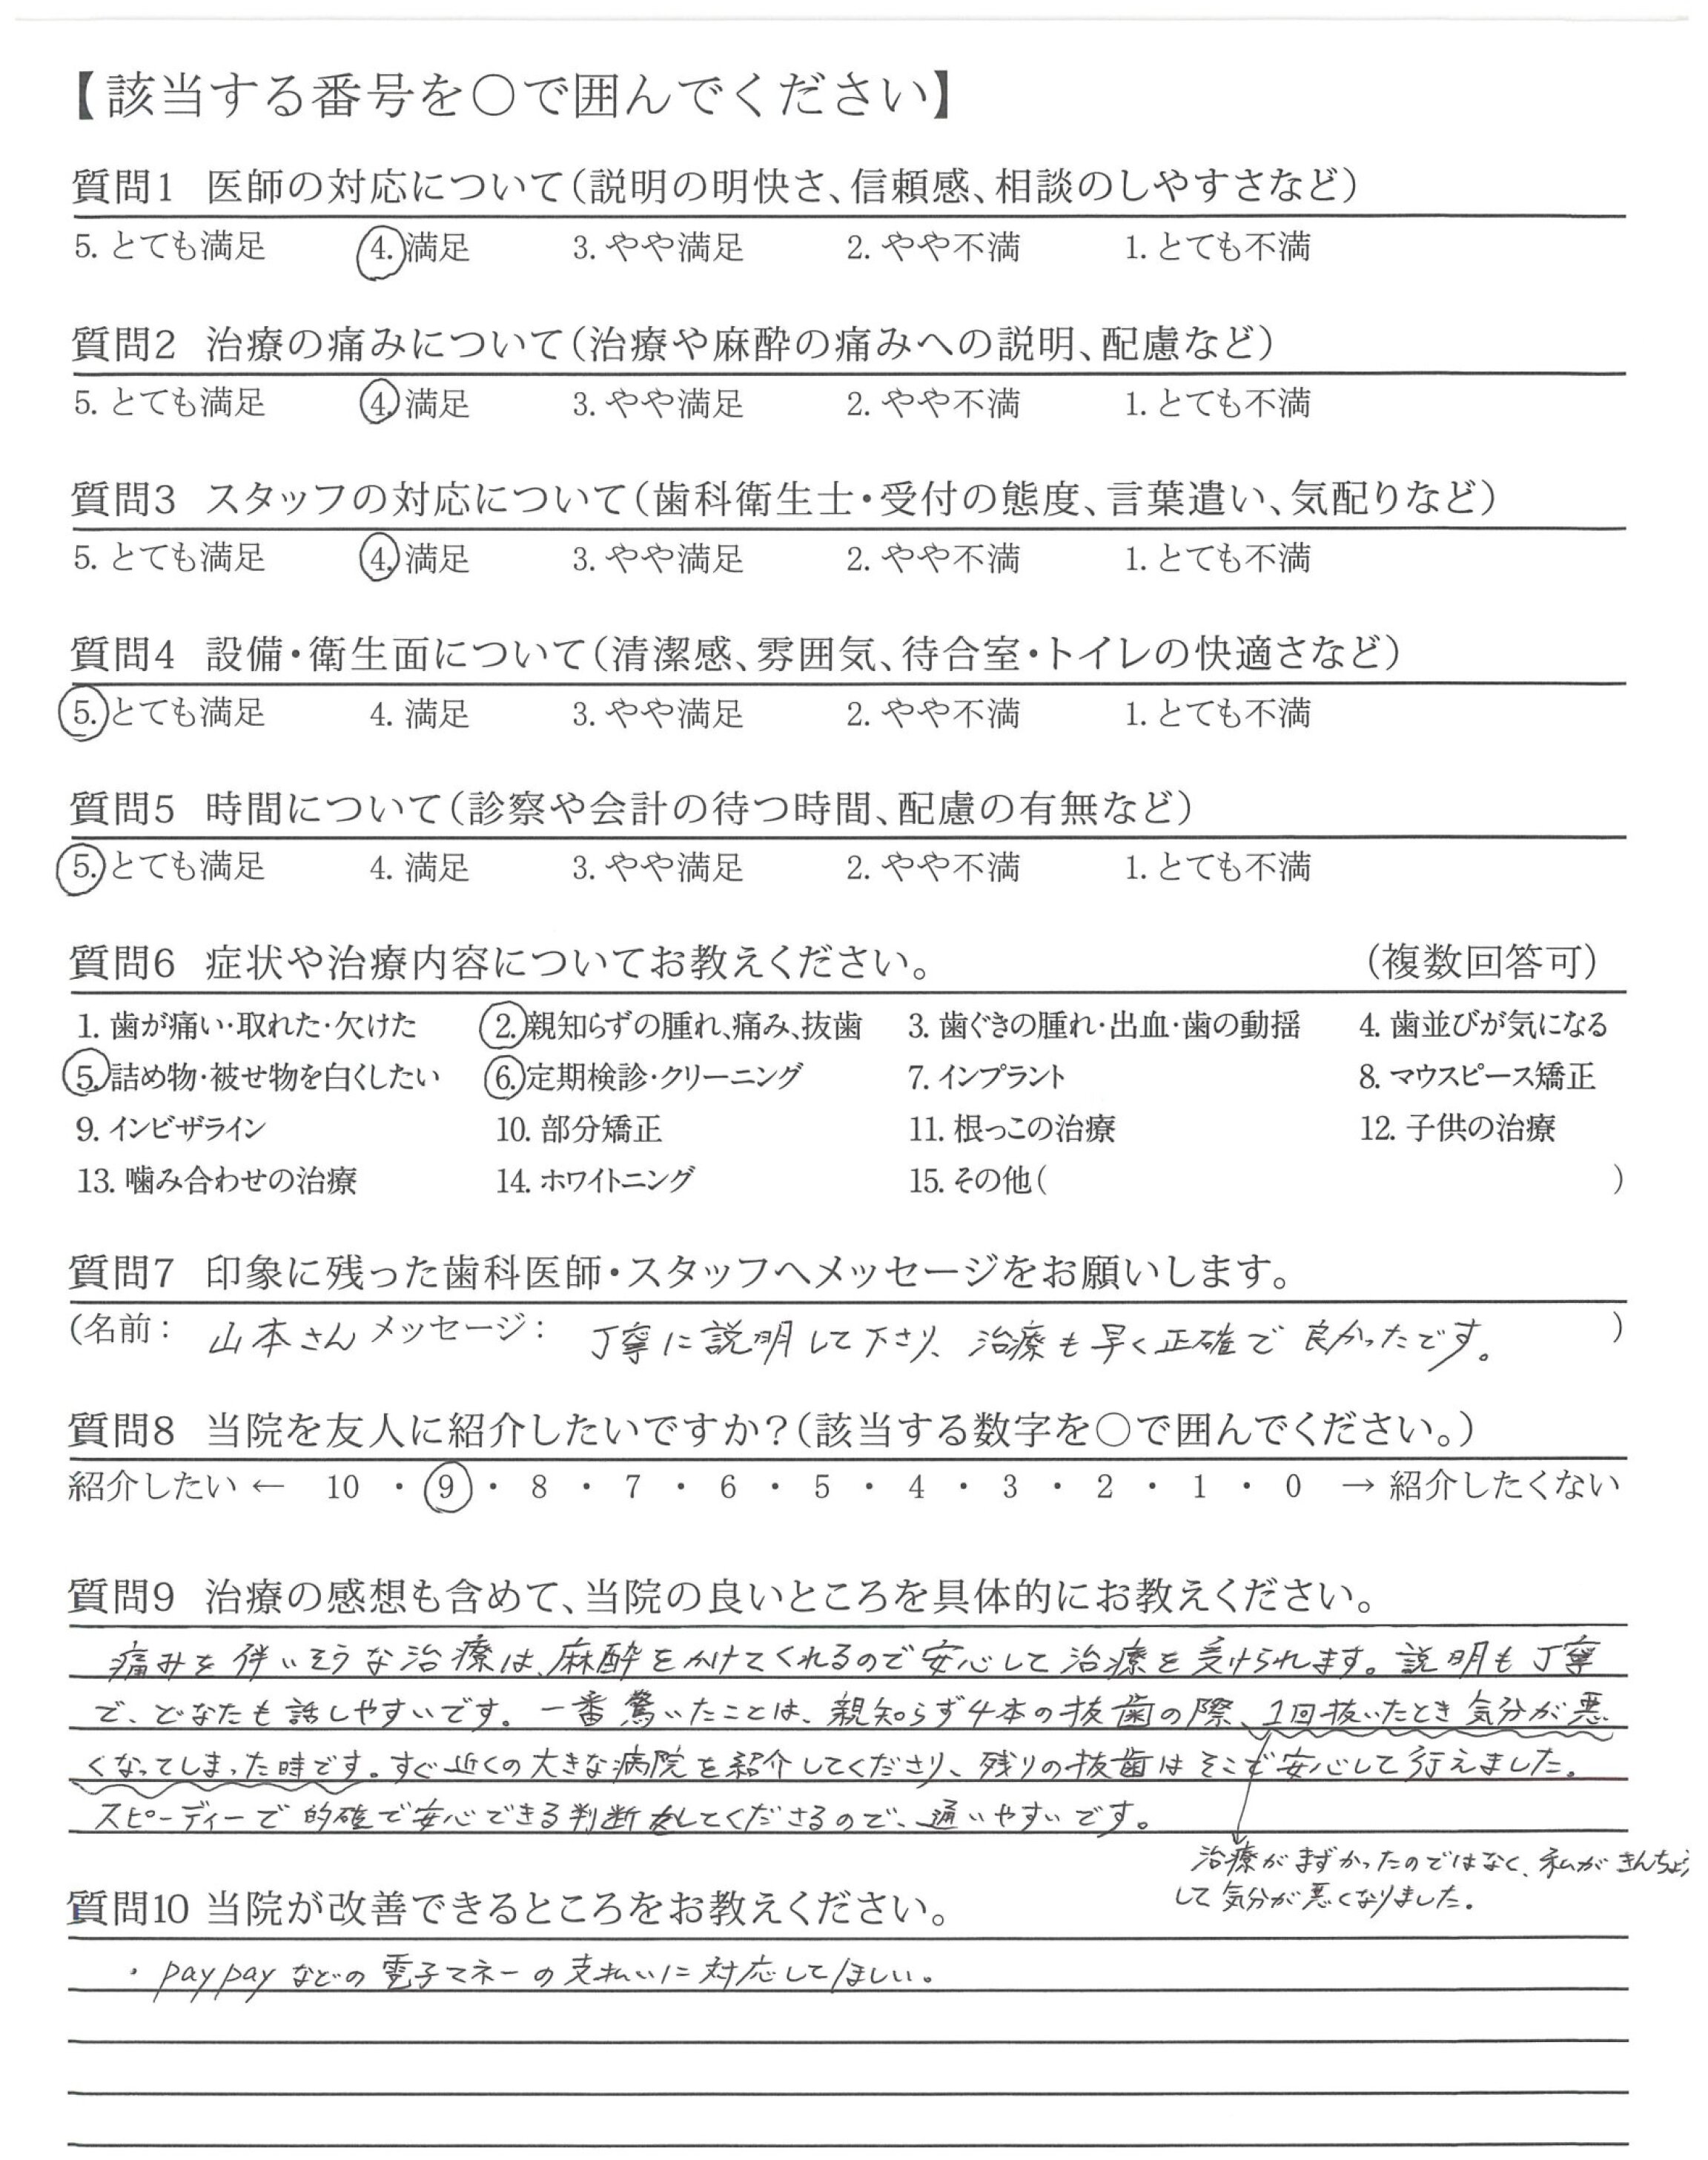 【該当する番号を○で囲んでください】
質問1 医師の対応について(説明の明快さ、信頼感、相談のしやすさなど)
5. とても満足 4. 満足 3. やや満足 2. やや不満 1. とても不満
質問2 治療の痛みについて(治療や麻酔の痛みへの説明、配慮など)
5. とても満足 4. 満足 3. やや満足 2. やや不満 1. とても不満
質問3 スタッフの対応について(歯科衛生士・受付の態度、言葉遣い、気配りなど)
5. とても満足 4. 満足 3. やや満足 2. やや不満 1. とても不満
質問4 設備・衛生面について(清潔感、雰囲気、待合室・トイレの快適さなど)
5. とても満足 4. 満足 3. やや満足 2. やや不満 1. とても不満
質問5 時間について(診察や会計の待つ時間、配慮の有無など)
5. とても満足 4. 満足 3. やや満足 2. やや不満 1. とても不満
質問6 症状や治療内容についてお教えください。 (複数回答可)
1. 歯が痛い・取れた・欠けた 2. 親知らずの腫れ、痛み、抜歯 3. 歯ぐきの腫れ・出血・歯の動揺 4. 歯並びが気になる
5. 詰め物・被せ物を白くしたい 6. 定期検診・クリーニング 7. インプラント 8. マウスピース矯正
9. インビザライン 10. 部分矯正 11. 根っこの治療 12. 子供の治療
13. 噛み合わせの治療 14. ホワイトニング 15. その他( )
質問7 印象に残った歯科医師・スタッフへメッセージをお願いします。
(名前: 山本さん メッセージ: 丁寧に説明して下さり、治療も早く正確で良かったです。 )
質問8 当院を友人に紹介したいですか?(該当する数字を○で囲んでください。)
紹介したい ← 10 ・ 9 ・ 8 ・ 7 ・ 6 ・ 5 ・ 4 ・ 3 ・ 2 ・ 1 ・ 0 → 紹介したくない
質問9 治療の感想も含めて、当院の良いところを具体的にお教えください。
痛みを伴いそうな治療は、麻酔をかけてくれるので安心して治療を受けられます。説明も丁寧
で、どなたも話しやすいです。一番驚いたことは、親知らず4本の抜歯の際、1回抜いたとき気分が悪
くなってしまった時です。すぐ近くの大きな病院を紹介してくださり、残りの抜歯はそこで安心して行えました。
スピーディーで的確で安心できる判断をしてくださるので、通いやすいです。
治療がまずかったのではなく、私がきんちょう
して気分が悪くなりました。
質問10 当院が改善できるところをお教えください。
・paypayなどの電子マネーの支払いに対応してほしい。